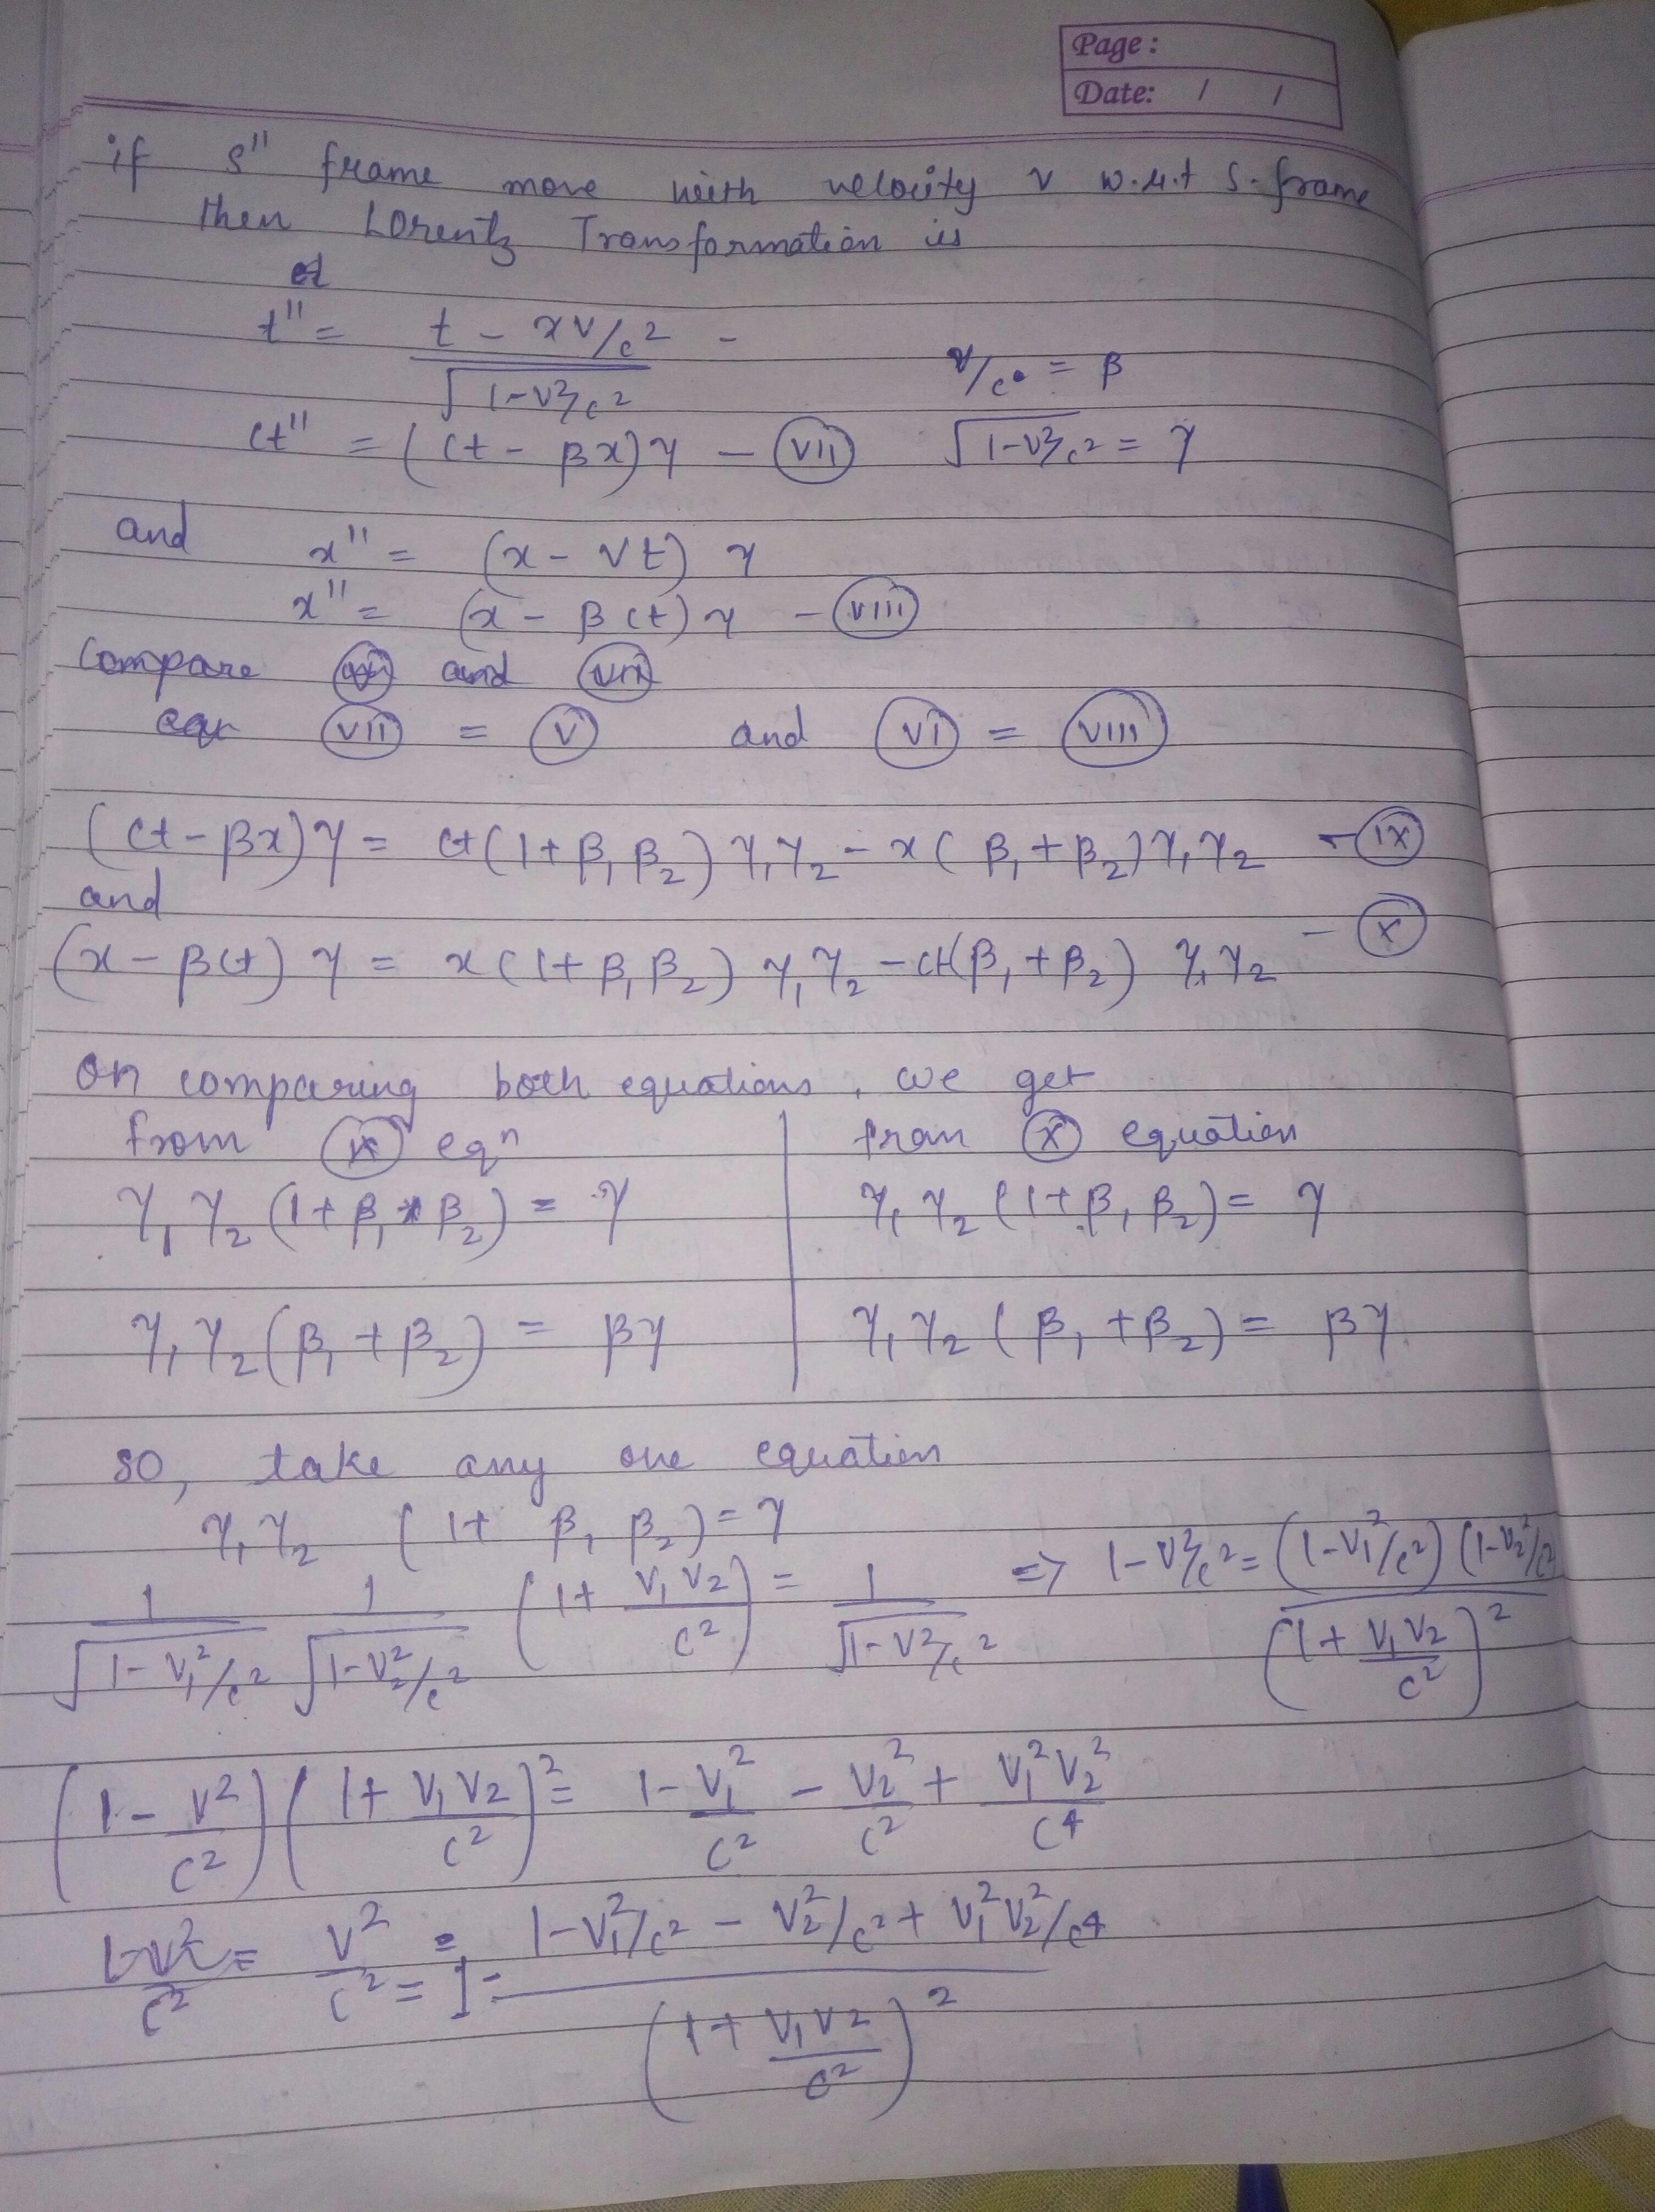 Page :
Date: / /
if S'' frame move with velocity v w.r.t S-frame
then Lorentz Transformation is
t'' = t - xv/c² -
√1-v²/c²
v/c = β
ct'' = (ct - βx)γ - (VII)
√1-v²/c² = γ
and x'' = (x - vt) γ
x'' = (x - βct)γ - (VIII)
Compare and (VII)
eqn (VII) = (V) and (VI) = (VIII)
(ct-βx)γ = ct(1+β₁β₂)γ₁γ₂ - x(β₁+β₂)γ₁γ₂ - (IX)
and
(x-βct)γ = x(1+β₁β₂)γ₁γ₂ - ct(β₁+β₂)γ₁γ₂ - (X)
On comparing both equations, we get
from (IX) eqⁿ
from (X) equation
γ₁γ₂(1+β₁β₂) = γ
γ₁γ₂(1+β₁β₂) = γ
γ₁γ₂(β₁+β₂) = βγ
γ₁γ₂(β₁+β₂) = βγ
so, take any one equation
γ₁γ₂ (1+ β₁β₂) = γ
1/√1-v₁²/c² 1/√1-v₂²/c² (1+ v₁v₂/c²) = 1/√1-v²/c² => 1-v²/c² = (1-v₁²/c²)(1-v₂²/c²)/(1+ v₁v₂/c²)²
(1- v²/c²)(1+ v₁v₂/c²)² = 1- v₁²/c² - v₂²/c² + v₁²v₂²/c⁴
v²/c² = 1- (1-v₁²/c² - v₂²/c² + v₁²v₂²/c⁴)/(1+ v₁v₂/c²)²